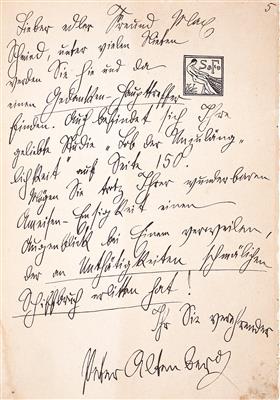 5
Lieber edler Freund
unter vielen Nieten
werden Sie hie und da
einen Gedanken-Haupttreffer
finden. Auch befindet sich Ihre
geliebte Studie „Lob der Unzuläng-
lichkeit" auf Seite 150.
Mögen Sie trotz Ihrer wunderbaren
Ameisen-Emsigkeit einen
Augenblick bei Einem verweilen,
der an Unthätigkeiten schmählichen
Schiffbruch erlitten hat!
Ihr Sie verehrender
Peter Altenberg